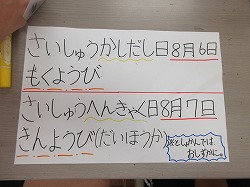 さいしゅうかしだし日8月6日
もくようび
さいしゅうへんきゃく日8月7日
きんようび(だいほうか)
※としょかんでは、
おしずかに。